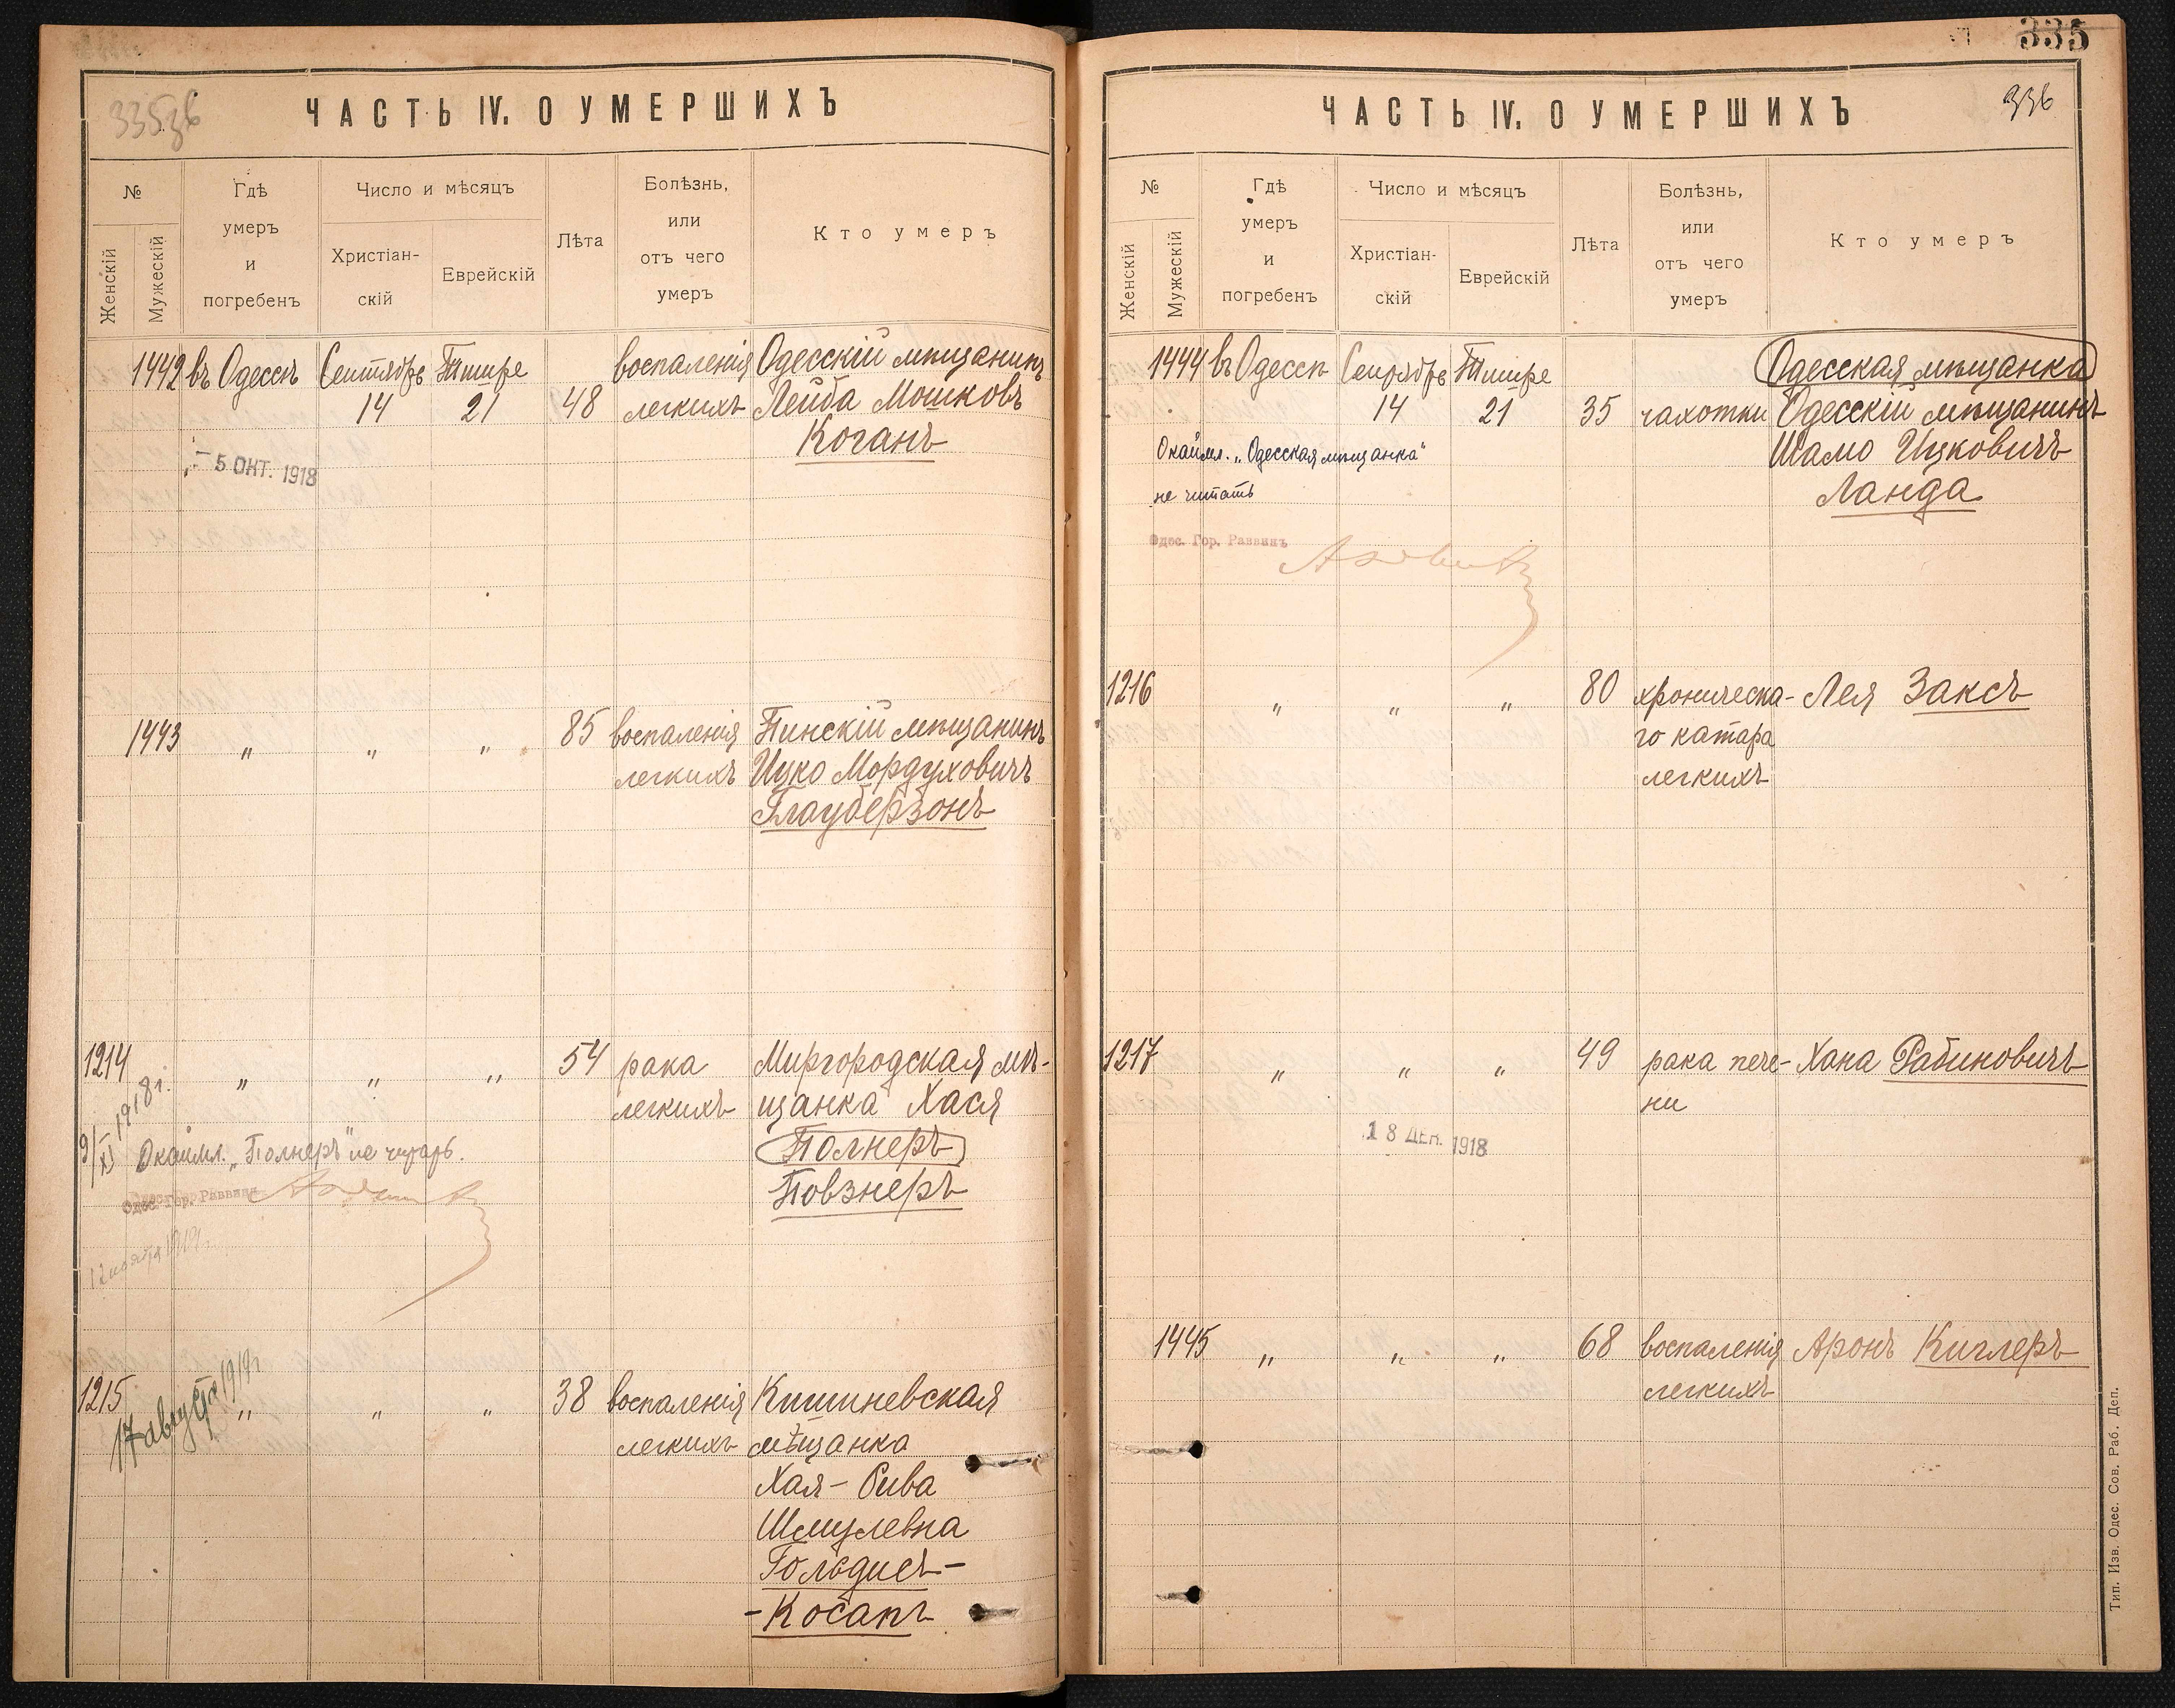 33536
ЧАСТЬ IV. О УМЕРШИХЪ
№
Женскій
Мужескій
Гдѣ
умеръ
и
погребенъ
Число и мѣсяцъ
Христіан-
скій
Еврейскій
Лѣта
Болѣзнь,
или
отъ чего
умеръ
Кто умеръ
1442 въ Одессѣ Сентябрь Тишре воспаленія Одесскій мѣщанинъ
14 21 48 легкихъ Лейба Мошковъ
Коганъ
- 5 ОКТ. 1918
1443 " " " 85 воспаленія Пинскій мѣщанинъ
легкихъ Ицко Мордуховичъ
Глауберзонъ
1214 " " " 54 рака Миргородская мѣ-
легкихъ щанка Хася
Полнеръ
Повзнеръ
9/XI 1918 г.
Окаймл. „Полнеръ" не читать.
Одес. Гор. Раввинъ
12 ноября 1919 г.
1215 " " " 38 воспаленія Кишиневская
легкихъ мѣщанка
Хая-Сива
Шмулевна
Гольдисъ-
-Косапъ
17 августа 1919 г.
335
336
ЧАСТЬ IV. О УМЕРШИХЪ
№
Женскій
Мужескій
Гдѣ
умеръ
и
погребенъ
Число и мѣсяцъ
Христіан-
скій
Еврейскій
Лѣта
Болѣзнь,
или
отъ чего
умеръ
Кто умеръ
1444 въ Одессѣ Сентябрь Тишре Одесская мѣщанка
14 21 35 чахотки Одесскій мѣщанинъ
Шамо Ицковичъ
Ланда
Окаймл. „Одесская мѣщанка"
не читать
Одес. Гор. Раввинъ
1216 " " " 80 хроническа- Лея Заксъ
го катара
легкихъ
1217 " " " 49 рака пече- Хана Рабиновичъ
ни
18 ДЕК. 1918
1445 " " " 68 воспаленія Аронъ Киглеръ
легкихъ
Тип. Изв. Одес. Сов. Раб. Деп.